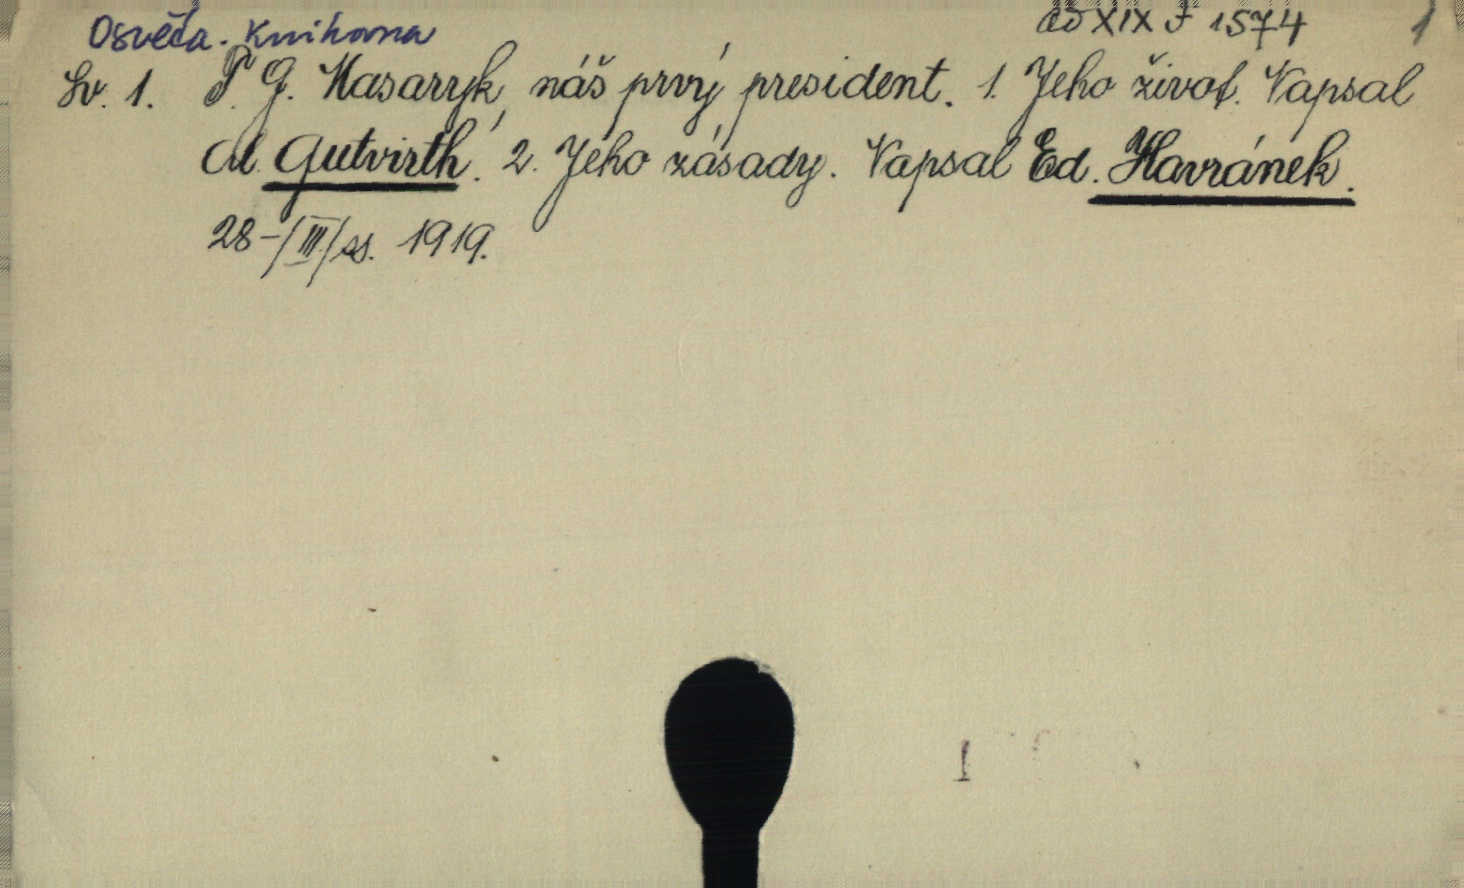 Osvěta. Knihovna
ad XIX F 1574
1
Sv. 1. T. G. Masaryk, náš prvý president. 1. Jeho život. Napsal
Al. Gutvirth. 2. Jeho zásady. Napsal Ed. Havránek.
28-/III/ss. 1919.
1